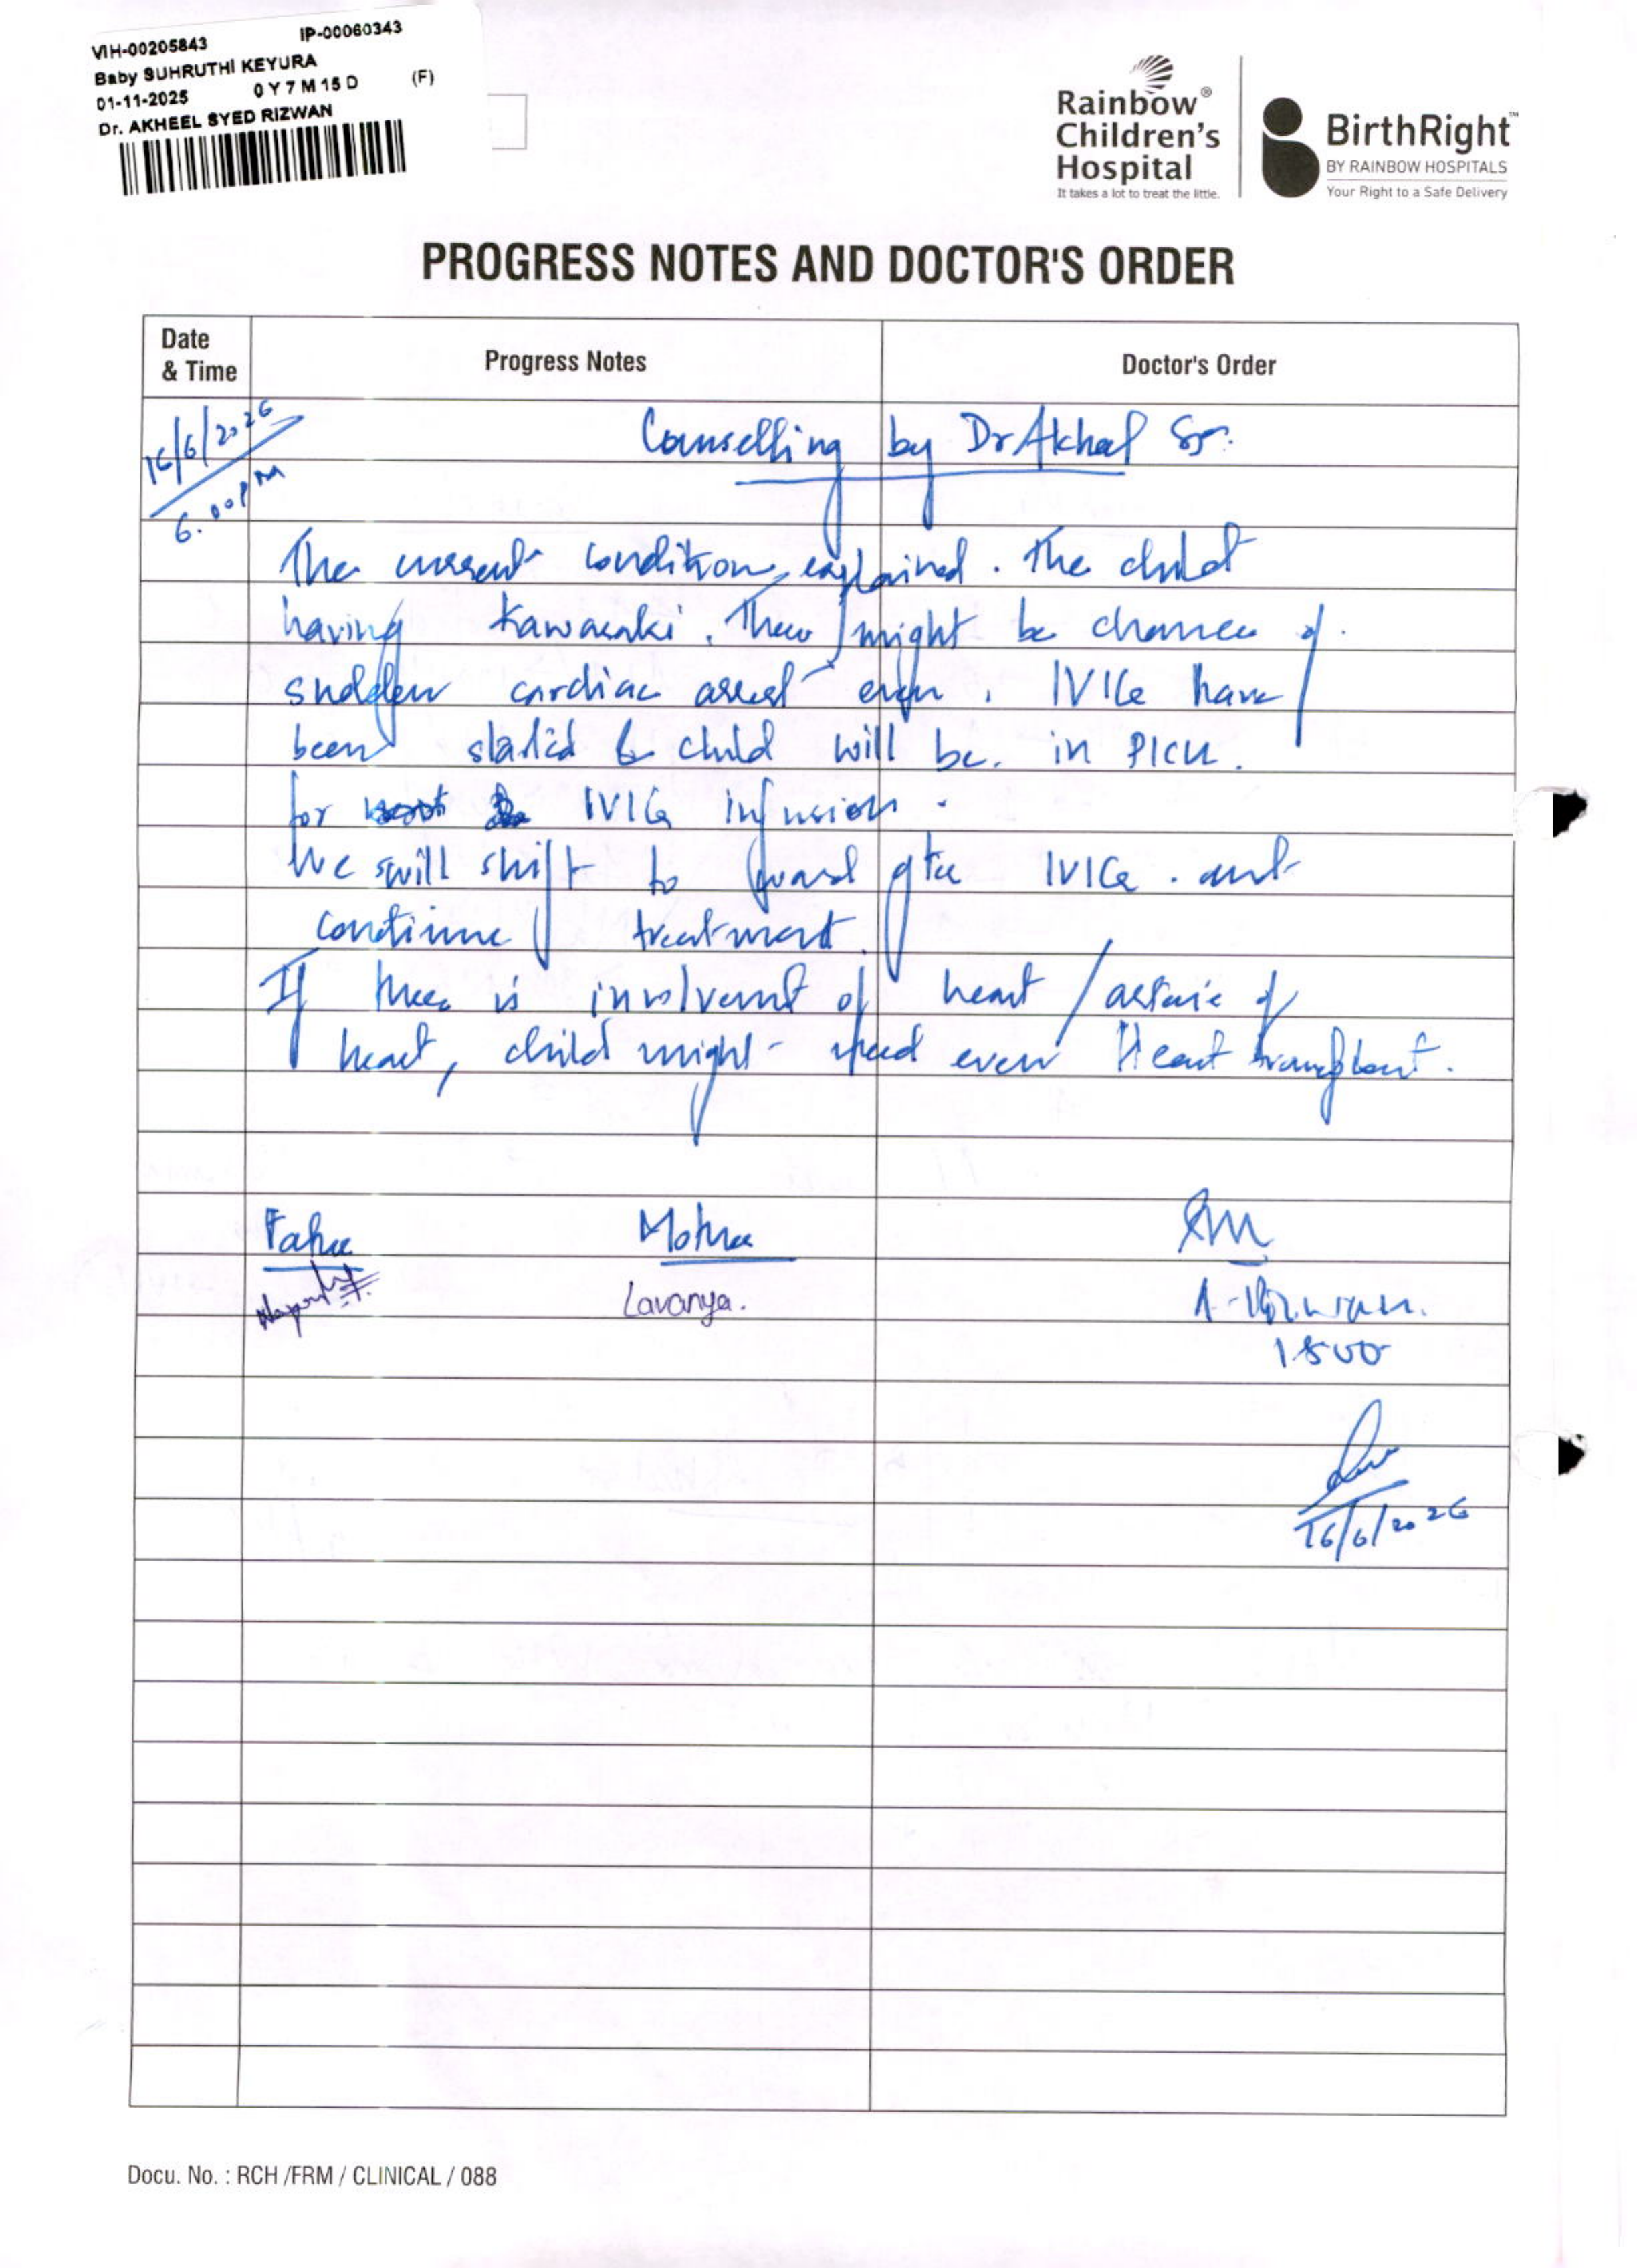 VIH-00205843 IP-00060343
Baby SUHRUTHI KEYURA
01-11-2025 0 Y 7 M 15 D (F)
Dr. AKHEEL SYED RIZWAN
Rainbow®
Children's
Hospital
It takes a lot to treat the little.
BirthRight™
BY RAINBOW HOSPITALS
Your Right to a Safe Delivery
PROGRESS NOTES AND DOCTOR'S ORDER
Date
& Time
Progress Notes
Doctor's Order
16/6/2026
6.00PM
Counselling by Dr Akheel Sr.
The current condition explained. The child
having Kawasaki. There might be chances of
sudden cardiac arrest even. IVIG have
been started & child will be in PICU.
for IVIG infusion.
We will shift to ward after IVIG. and
continue treatment.
If there is involvement of heart / arterie of
heart, child might need even Heart transplant.
Father Mother
Lavanya.
A. Rizwan.
1800
16/6/2026
Docu. No. : RCH /FRM / CLINICAL / 088